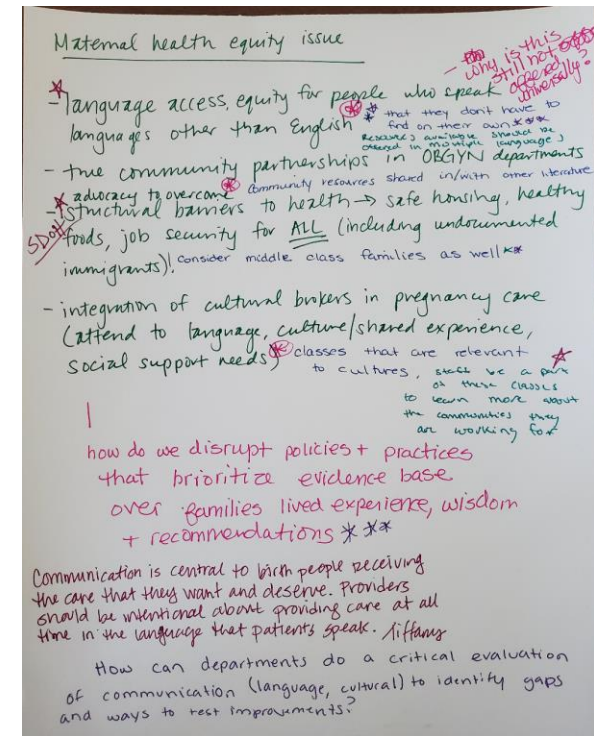 Maternal health equity issue
- why is this
still not
offered
universally?
- language access, equity for people who speak
languages other than English
* that they don't have to
find on their own ***
Resources available should be
offered in multiple languages
- true community partnerships in OBGYN departments
community resources shared in/with other literature
advocacy to overcome
- structural barriers to health → safe housing, healthy
SDOH
foods, job security for ALL (including undocumented
immigrants)!
consider middle class families as well **
- integration of cultural brokers in pregnancy care
(attend to language, culture/shared experience,
social support needs)
* classes that are relevant
to cultures,
staff be a part
of these classes
to learn more about
the communities they
are working for
how do we disrupt policies + practices
that prioritize evidence base
over families lived experience, wisdom
+ recommendations ***
Communication is central to birth people receiving
the care that they want and deserve. Providers
should be intentional about providing care at all
time in the language that patients speak. Tiffany
How can departments do a critical evaluation
of communication (language, cultural) to identify gaps
and ways to test improvements?